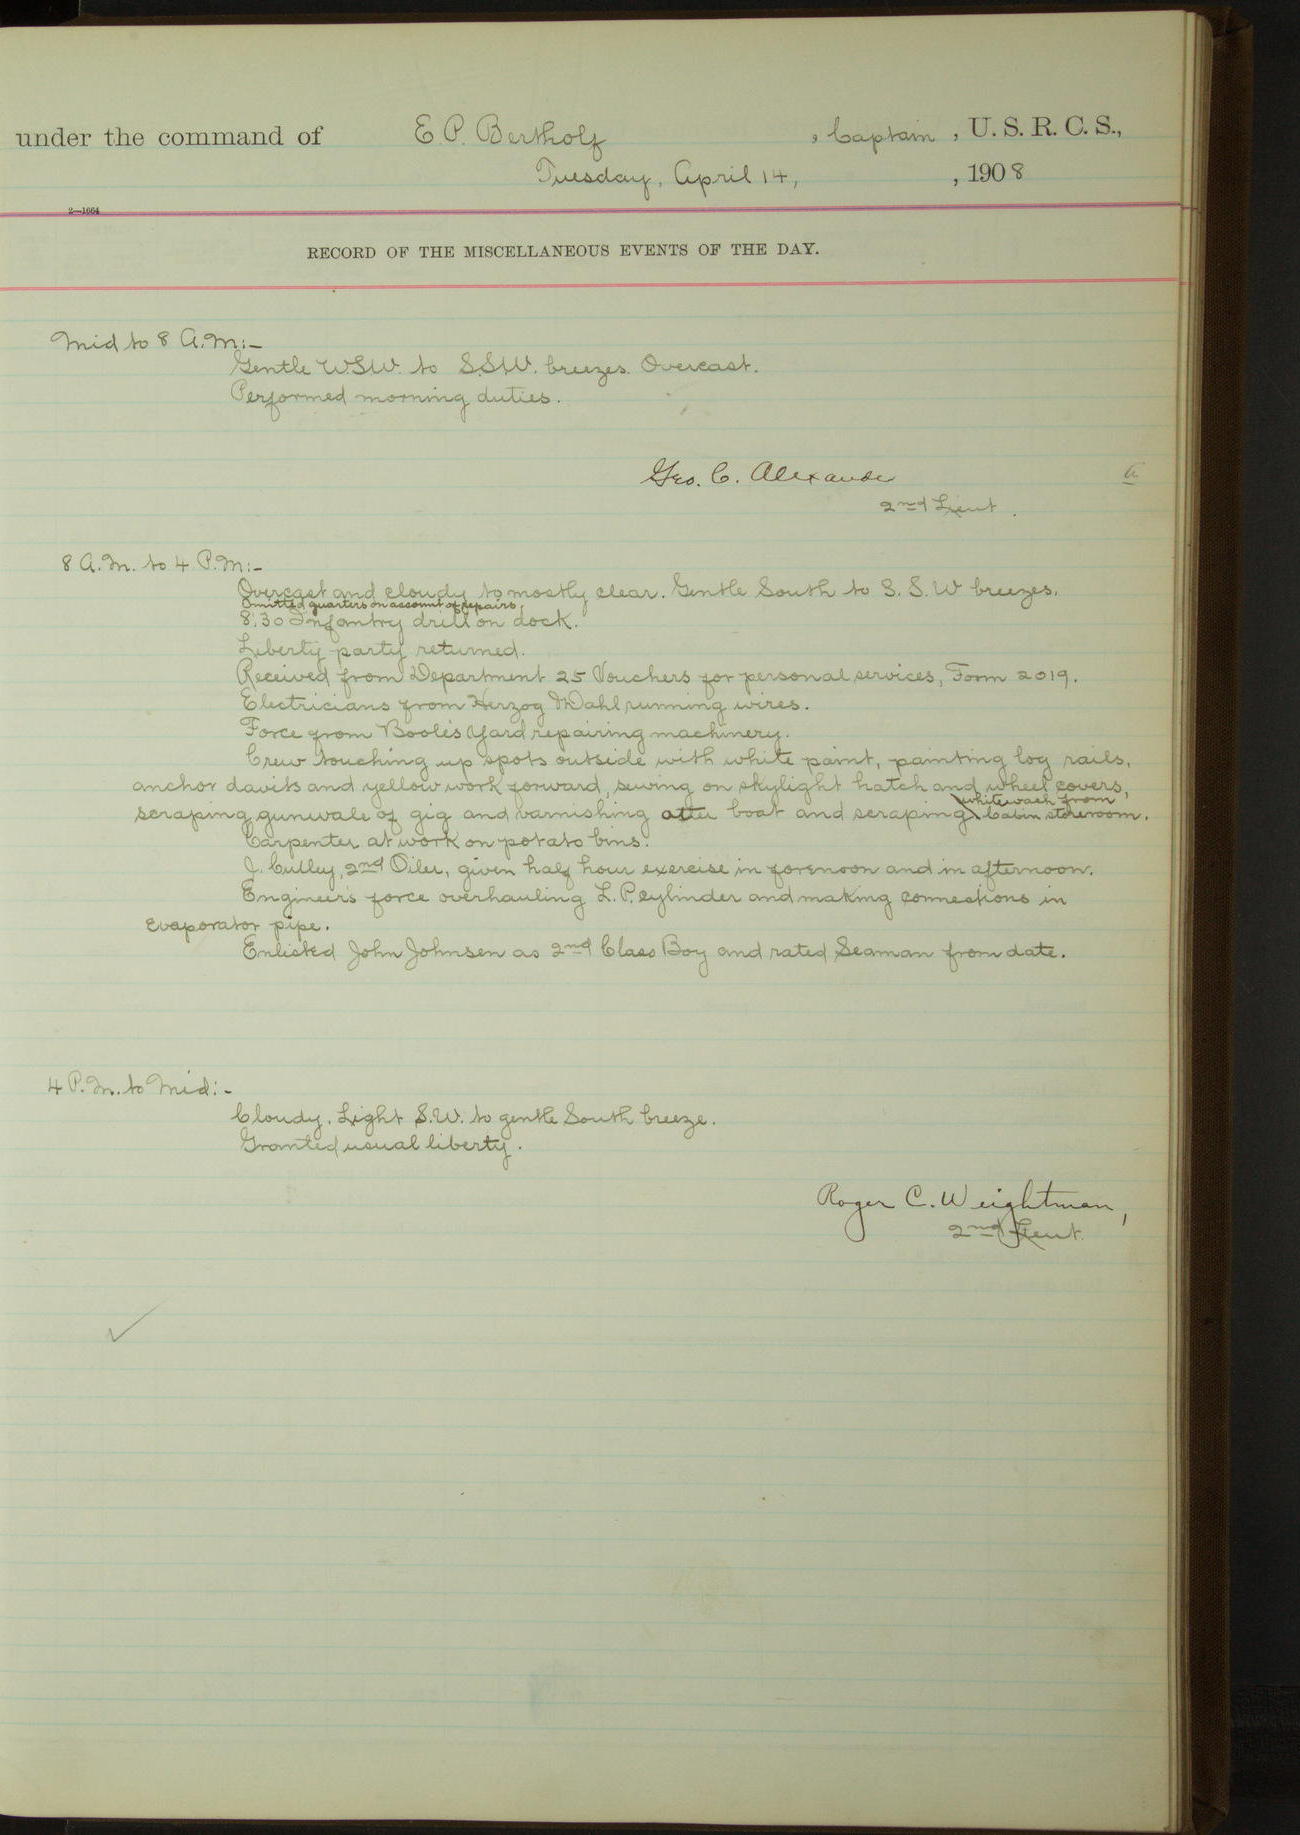 under the command of E. P. Bertholf, Captain, U. S. R. C. S.,
Tuesday, April 14, , 1908
2—1664
RECORD OF THE MISCELLANEOUS EVENTS OF THE DAY.
Mid to 8 A.M:-
Gentle WSW. to S.S.W. breezes. Overcast.
Performed morning duties.
Geo. C. Alexander
2nd Lieut.
8 A.M. to 4 P.M:-
Overcast and cloudy to mostly clear. Gentle South to S. S. W breezes.
Omitted quarters on account of repairs.
8:30 Infantry drill on dock.
Liberty party returned.
Received from Department 25 Vouchers for personal services, Form 2019.
Electricians from Herzog & Dahl running wires.
Force from Boole's Yard repairing machinery.
Crew touching up spots outside with white paint, painting log rails,
anchor davits and yellow work forward, sewing on skylight hatch and wheel covers,
whitewash from
scraping gunwale of gig and varnishing boat and scraping Cabin storeroom.
Carpenter at work on potato bins.
J. Culley, 2nd Oiler, given half hour exercise in forenoon and in afternoon.
Engineer's force overhauling L. P. cylinder and making connections in
Evaporator pipe.
Enlisted John Johnsen as 2nd Class Boy and rated Seaman from date.
4 P.M. to Mid:-
Cloudy. Light S.W. to gentle South breeze.
Granted usual liberty.
Roger C. Weightman,
2nd Lieut.